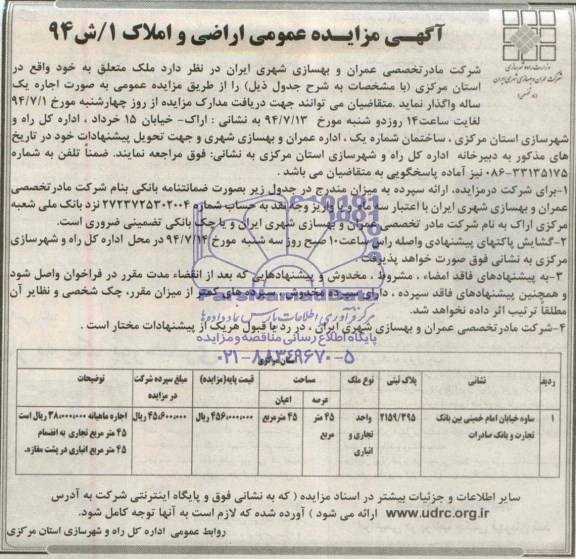 آگهی مزایده عمومی اراضی و املاک ۱/ش۹۴
وزارت راه و شهرسازی
شرکت عمران و بهسازی شهری ایران
شرکت مادرتخصصی عمران و بهسازی شهری ایران در نظر دارد ملک متعلق به خود واقع در
استان مرکزی (با مشخصات به شرح جدول ذیل) را از طریق مزایده عمومی به صورت اجاره یک
ساله واگذار نماید. متقاضیان می توانند جهت دریافت مدارک مزایده از روز چهارشنبه مورخ ۹۴/۷/۱
لغایت ساعت۱۴ روزدو شنبه مورخ ۹۴/۷/۱۳ به نشانی : اراک- خیابان ۱۵ خرداد ، اداره کل راه و
شهرسازی استان مرکزی ، ساختمان شماره یک ، اداره عمران و بهسازی شهری و جهت تحویل پیشنهادات خود در تاریخ
های مذکور به دبیرخانه اداره کل راه و شهرسازی استان مرکزی به نشانی: فوق مراجعه نمایند. ضمناً تلفن به شماره
۰۸۶-۳۳۱۳۵۱۷۵ نیز آماده پاسخگویی به متقاضیان می باشد .
۱-برای شرکت درمزایده، ارائه سپرده به میزان مندرج در جدول زیر بصورت ضمانتنامه بانکی بنام شرکت مادرتخصصی
عمران و بهسازی شهری ایران با اعتبار سه ماه ویا واریز وجه نقد به حساب شماره ۲۷۲۳۷۲۵۳۰۲۰۰۴ نزد بانک ملی شعبه
مرکزی اراک به نام شرکت مادر تخصصی عمران و بهسازی شهری ایران و یا چک بانکی تضمینی ضروری است.
۲-گشایش پاکتهای پیشنهادی واصله راس ساعت۱۰ صبح روز سه شنبه مورخ ۹۴/۷/۱۴ در محل اداره کل راه و شهرسازی
مرکزی به نشانی فوق صورت خواهد پذیرفت
۳-به پیشنهادهای فاقد امضاء ، مشروط ، مخدوش و پیشنهادهایی که بعد از انقضاء مدت مقرر در فراخوان واصل شود
و همچنین پیشنهادهای فاقد سپرده ، دارای سپرده مخدوش، سپرده های کمتر از میزان مقرر، چک شخصی و نظایر آن
مطلقاً ترتیب اثر داده نخواهد شد.
۴-شرکت مادرتخصصی عمران و بهسازی شهری ایران ، در رد یا قبول هریک از پیشنهادات مختار است .
ParsNamadData
مرکز فرآوری اطلاعات پارس نماد داده ها
پایگاه اطلاع رسانی مناقصه و مزایده
۰۲۱-۸۸۳۴۹۶۷۰-۵
استان مرکزی
ردیف نشانی پلاک ثبتی نوع ملک مساحت قیمت پایه(مزایده) مبلغ سپرده شرکت در مزایده توضیحات
عرصه اعیان
۱ ساوه خیابان امام خمینی بین بانک ۲۱۵۹/۳۹۵ واحد ۴۵ متر ۴۵ مترمربع ۴۵۶/۰۰۰/۰۰۰ ریال ۴۵/۶۰۰/۰۰۰ ریال اجاره ماهیانه ۳۸/۰۰۰/۰۰۰ ریال است
تجارت و بانک صادرات تجاری و مربع ۴۵ متر مربع تجاری به انضمام
انباری ۴۵ متر مربع انباری در پشت مغازه.
سایر اطلاعات و جزئیات بیشتر در اسناد مزایده ( که به نشانی فوق و پایگاه اینترنتی شرکت به آدرس
www.udrc.org.ir ارائه می شود ) آورده شده که لازم است به آنها توجه کامل شود.
روابط عمومی اداره کل راه و شهرسازی استان مرکزی